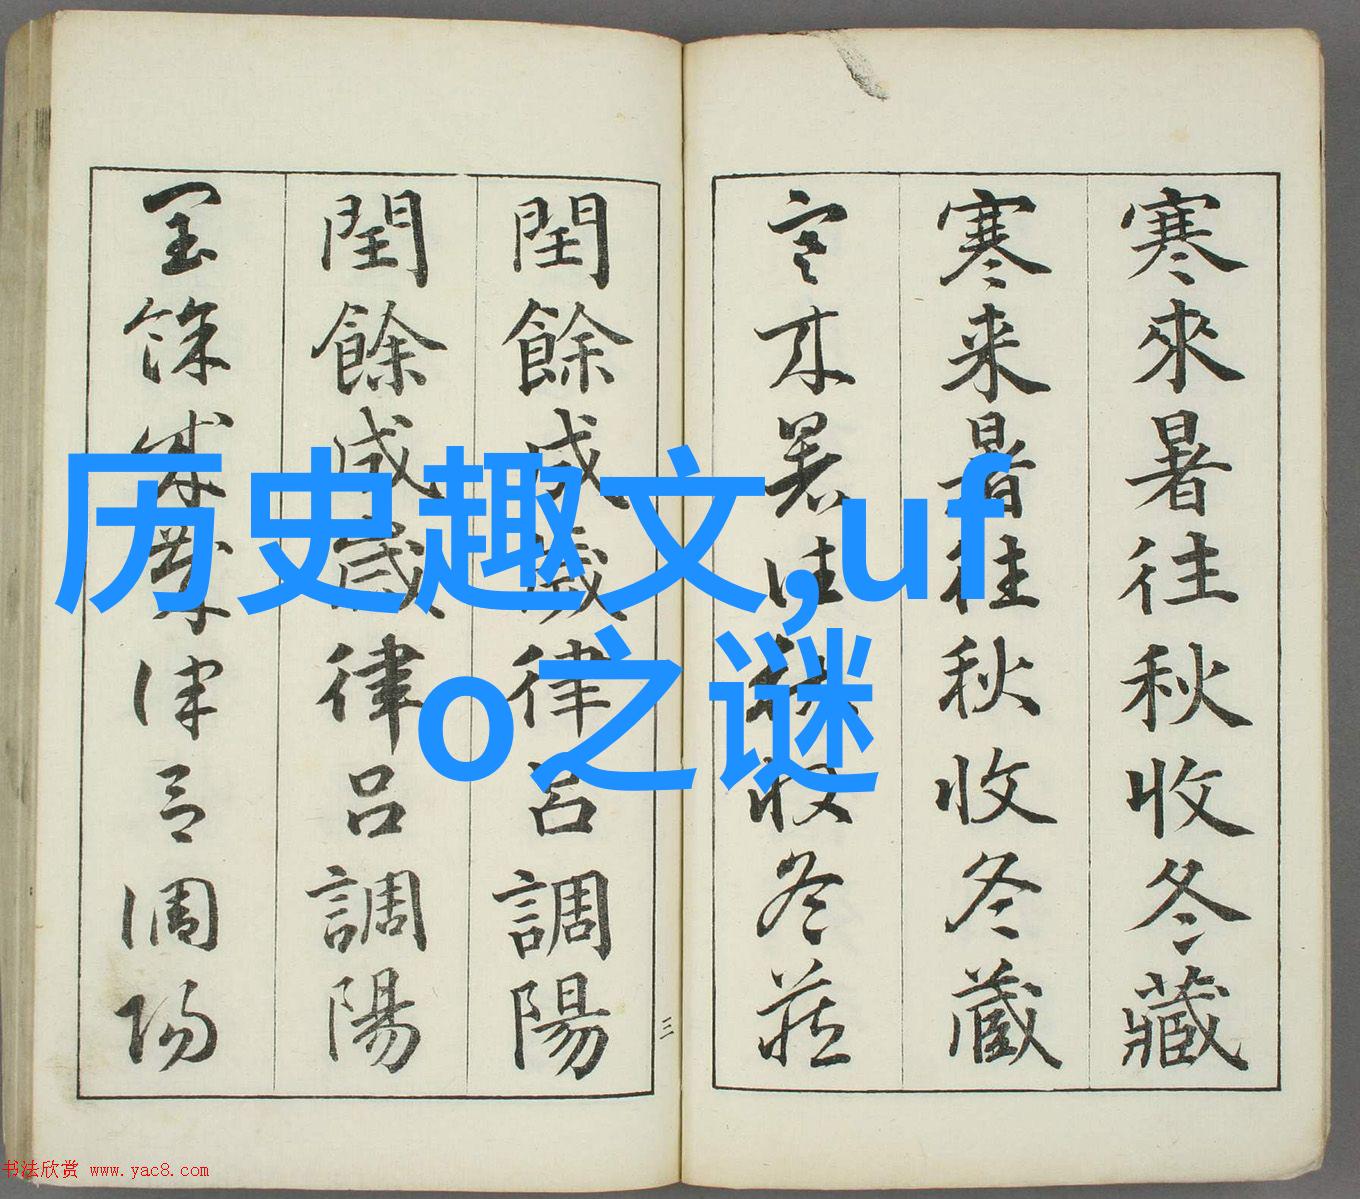 寒來暑往秋收冬藏
寒来暑往秋收冬蔵
寒来暑往秋收冬藏
閏餘成歲律呂調陽
閏餘成歲律呂調陽
閏餘成歲律呂調陽
三
历史趣文,uf
o之谜
书法欣赏 www.yac8.com